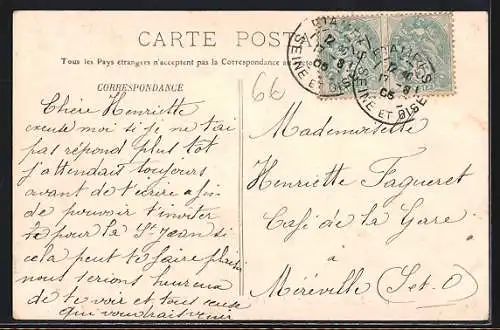 CARTE POST
Tous les Pays étrangers n'acceptent pas la Correspondance au
CORRESPONDANCE
66
Chère Henriette
excuse moi si je ne t'ai
pas répond plus tot
j'attendait toujours
avant de t'écrire afin
de pouvoir t'inviter
te pour la St Jean si
cela peut te faire plaisir
nous serions heureux
de te voir et tous ceux
qui voudrait venir
ETAMPES
17 -8
05
SEINE ET OISE
Mademoiselle
Henriette Faqueret
Café de la Gare
à
Méréville (S-et-O)